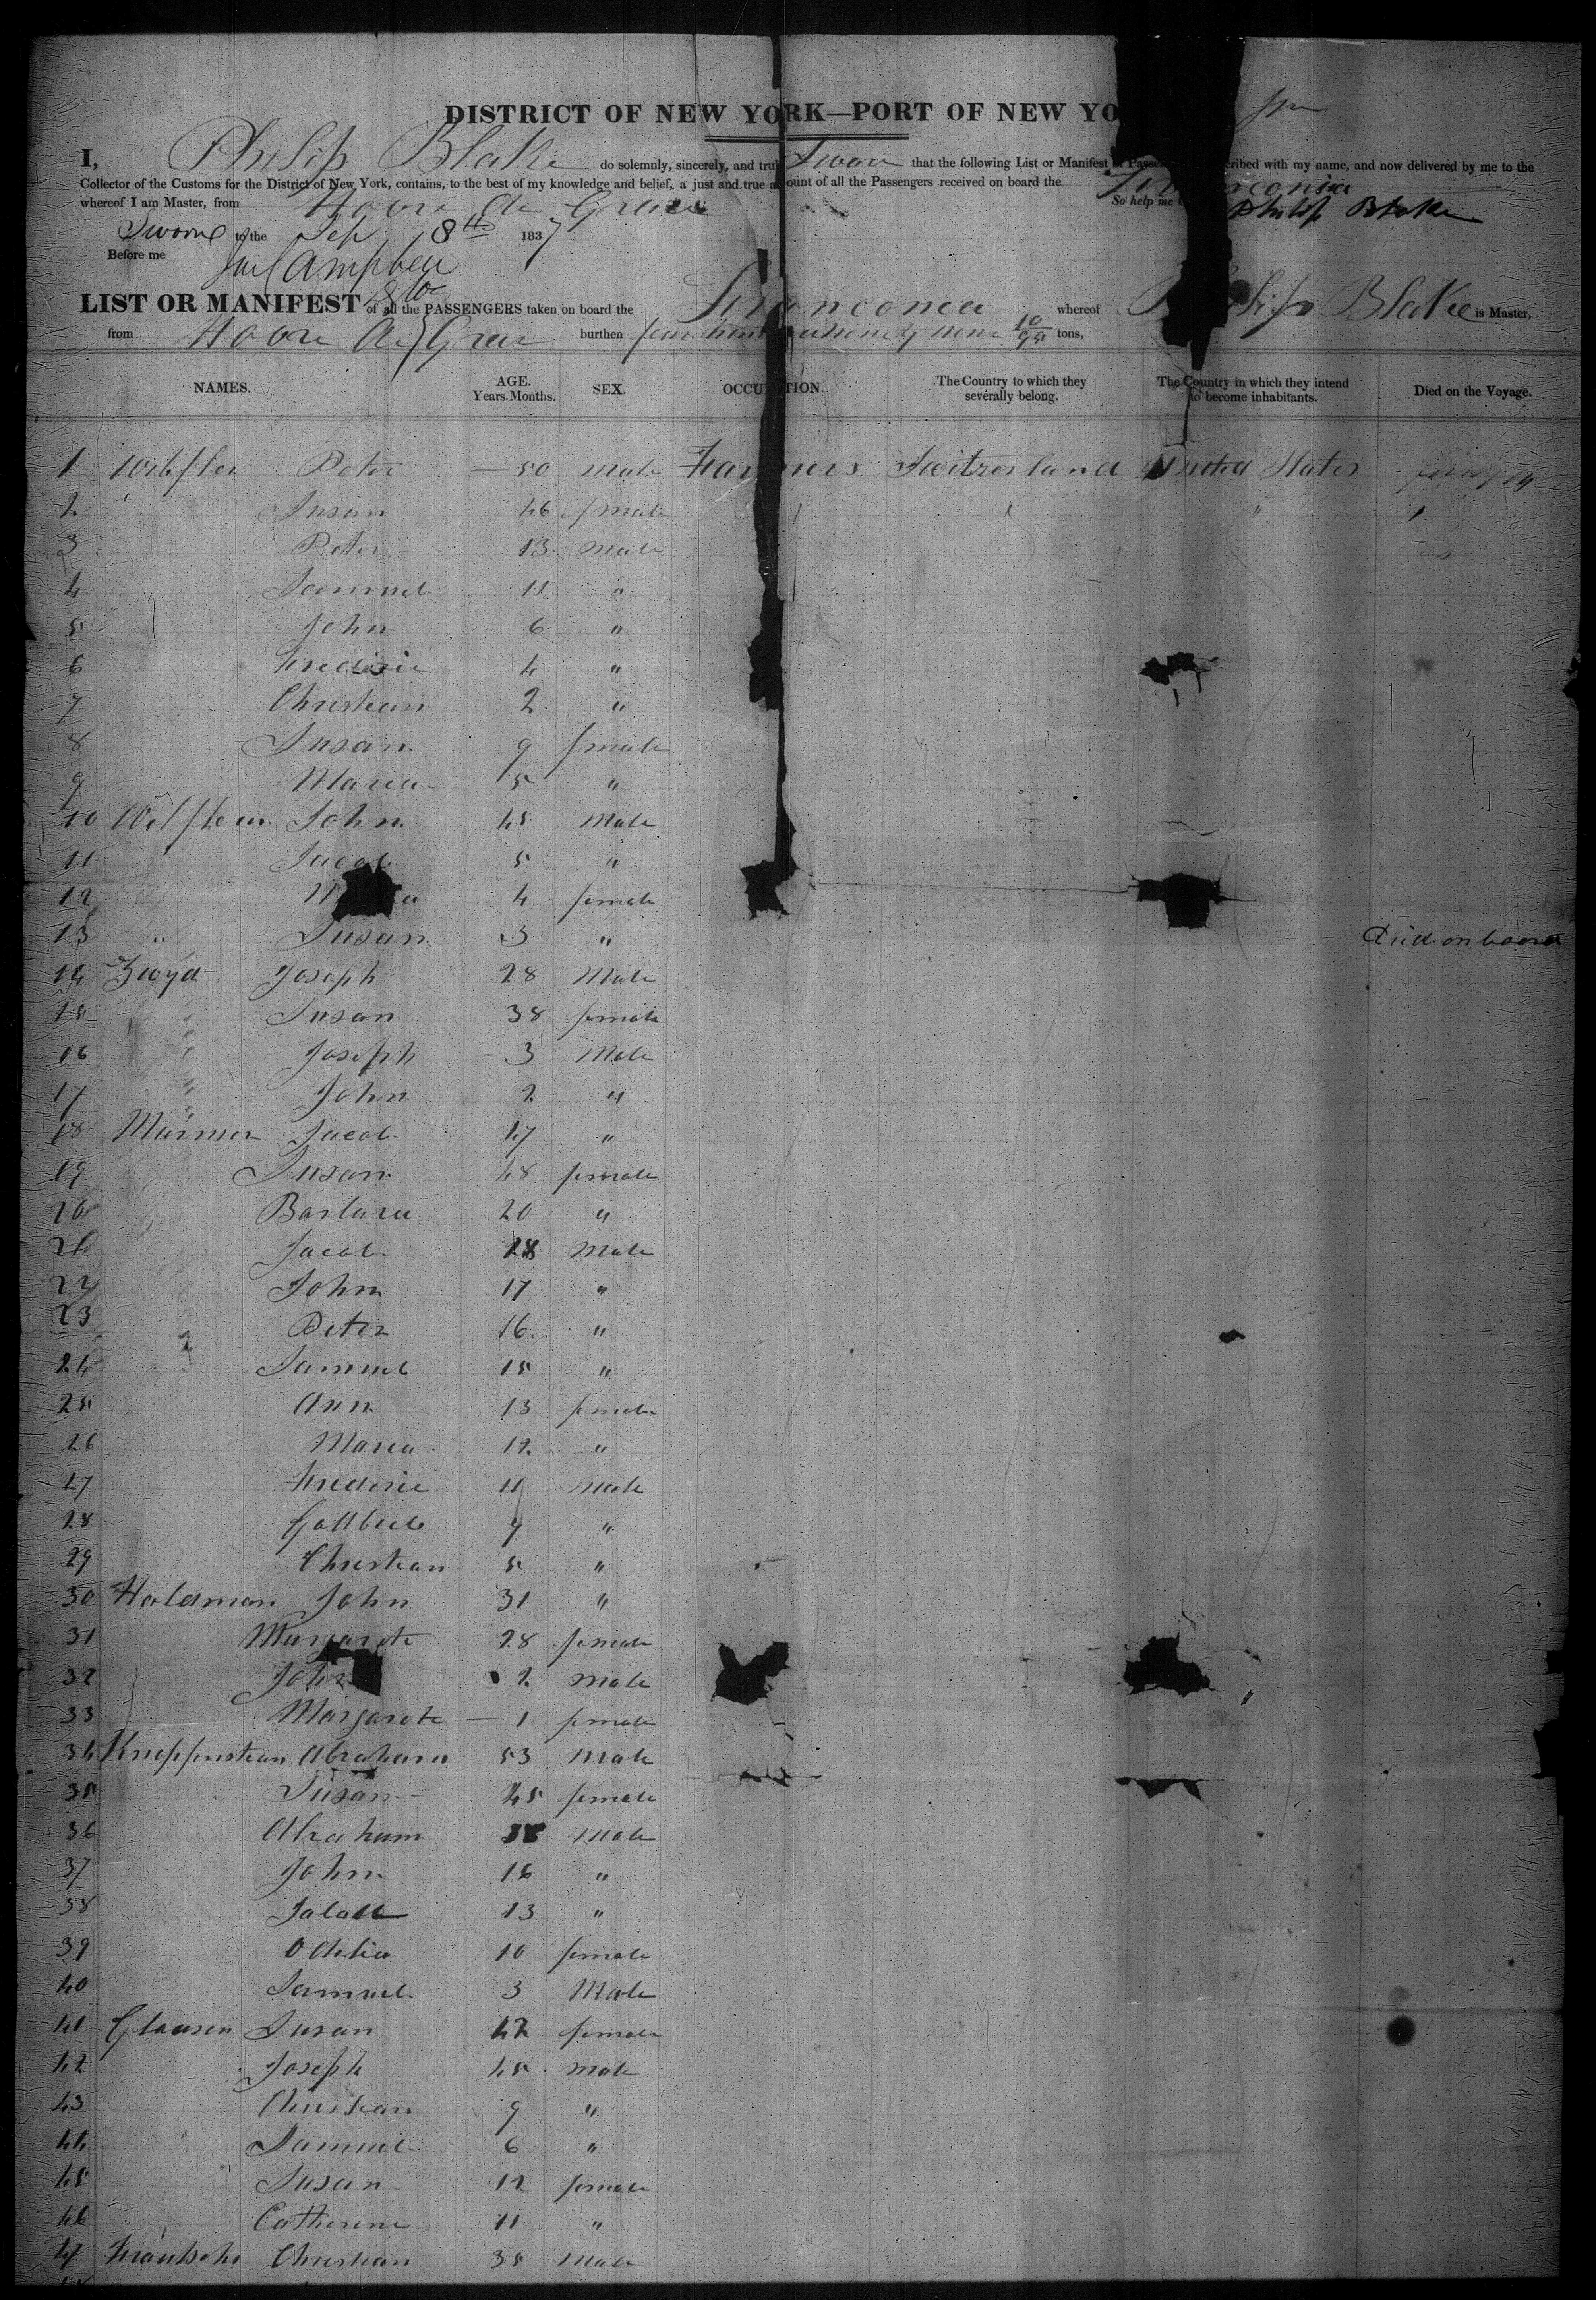 DISTRICT OF NEW YORK—PORT OF NEW YO
I, Philip Blake do solemnly, sincerely, and tru Swear that the following List or Manifest of Passen cribed with my name, and now delivered by me to the
Collector of the Customs for the District of New York, contains, to the best of my knowledge and belief, a just and true a ount of all the Passengers received on board the conia
whereof I am Master, from Havre de Grace So help me Philip Blake
Sworne to the Sep 8th 1837
Before me Campbell
LIST OR MANIFEST of all the PASSENGERS taken on board the Franconia whereof Philip Blake is Master,
from Havre de Grace burthen four ninety nine 10/95 tons,
NAMES. AGE. Years. Months. SEX. OCCUPATION. The Country to which they severally belong. The Country in which they intend to become inhabitants. Died on the Voyage.
1 Peter 50 Male Farmers Switzerland United States
2 Susan 46 female
3 Peter 13 Male
4 Samuel 11 "
5 John 6 "
6 Frederic 4 "
7 Christian 2 "
8 Susan 9 female
9 Maria 5 "
10 John 45 Male
11 Jacob 5 "
12 4 female
13 " Susan 3 " Died on board
14 Zwyd Joseph 28 Male
15 " Susan 38 female
16 " Joseph 3 Male
17 " John 2 "
18 Jacob 47 "
19 Susan 48 female
20 Barbara 20 "
21 Jacob 18 Male
22 John 17 "
23 Peter 16 "
24 Samuel 15 "
25 Ann 13 female
26 Maria 12 "
27 Frederic 11 Male
28 Gottlieb 7 "
29 Christian 5 "
30 Haldsman John 31 "
31 Margarete 28 female
32 John 2 Male
33 Margarete 1 female
34 Abraham 53 Male
35 Susan 45 female
36 Abraham 18 Male
37 John 16 "
38 13 "
39 10 female
40 Samuel 3 Male
41 Glausen Susan 42 female
42 Joseph 45 Male
43 Christian 9 "
44 Samuel 6 "
45 Susan 12 female
46 Catherine 11 "
47 Christian 35 Male